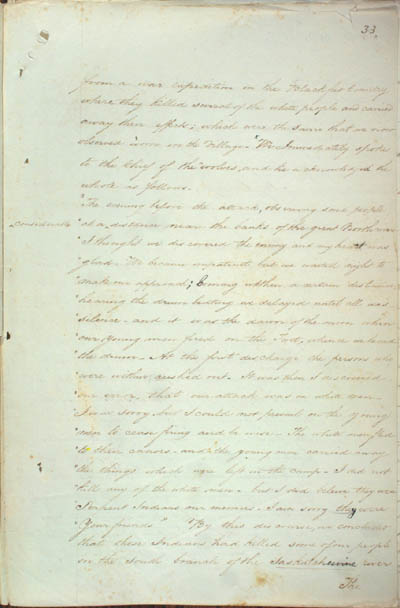 33
from a war expedition in the Black feet Country
where they killed several of the white people and carried
away their effects; which were the same that we now
observed worn in the Village. We Immediately spoke
to the Chief of the wolves, and he acknowledged the
whole as follows.
"The evening before the attack, observing some people
considerable
"at a distance near the banks of the great North river
"I thought we discovered the enemy and my heart was
"glad. We became impatient but we waited night to
"make our approach; Coming within a certain distance
"hearing the drum beating we delayed until all was
"silence. and it was the dawn of the morn when
"our young men fired on the Tent, where we heard
"the drum. At the first discharge the persons who
"were within rushed out. It was then I discovered
"our error, that our attack was on white men.
"I was sorry but I could not prevail on the young
"men to cease firing and be wise. The white men fled
"to their canoes. and the young men carried away
"the things which were left in the camp. I did not
"kill any of the white men. but I did believe they were
"Serpent Indians our enemies. I am sorry they were
"Your friends" By this discourse, we concluded
that these Indians had killed some of our people
on the South branch of the Saskatchewine river
The